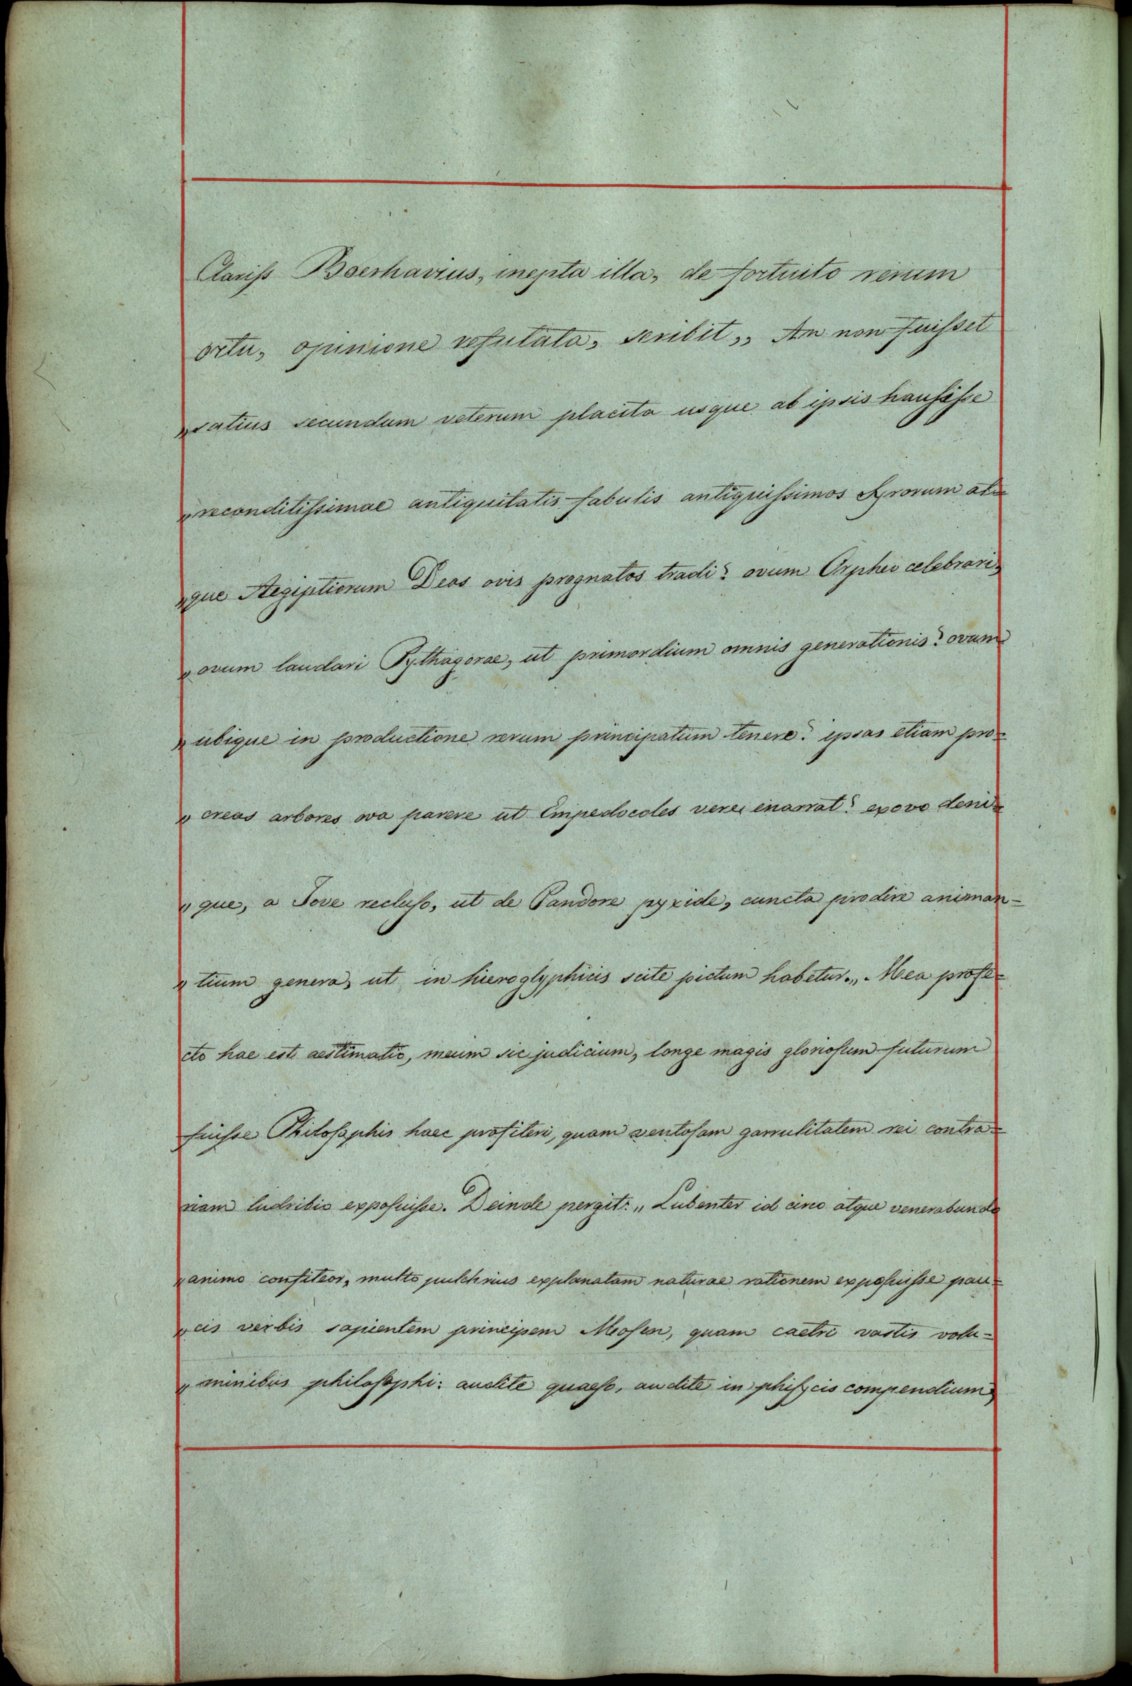 Clariss Boerhavius, inepta illa, de fortuito rerum
ortu, opinione refutata, scribit,, An non fuisset
„satius secundum veterum placita usque ab ipsis hausisse
„reconditissimae antiquitatis fabulis antiquissimos Syrorum at=
„que Aegiptiorum Deos ovis prognatos tradi? ovum Orpheo celebrari,
„ovum laudari Pythagorae, ut primordium omnis generationis? ovum
„ubique in productione rerum principatum tenere? ipsas etiam pro=
„ceras arbores ova parere ut Empedocoles vere enarrat? ex ovo deni=
„que, a Jove recluso, ut de Pandore pyxide, cuncta prodire animan=
„tium genera, ut in hieroglyphicis scite pictum habetur.„ Mea profe=
cto hae est aestimatio, meum sic judicium, longe magis gloriosum futurum
fuisse Philosophis haec profiteri, quam ventosam garrulitatem rei contra=
riam ludribio exposuisse. Deinde pergit: „Lubenter id circo atque venerabundo
„animo confiteor, multo pulchrius explanatam naturae rationem exposuisse pau=
„cis verbis sapientem principem Mosen, quam caetri vastis volu=
„minibus philosophi: audite quaeso, audite in phisycis compendium,